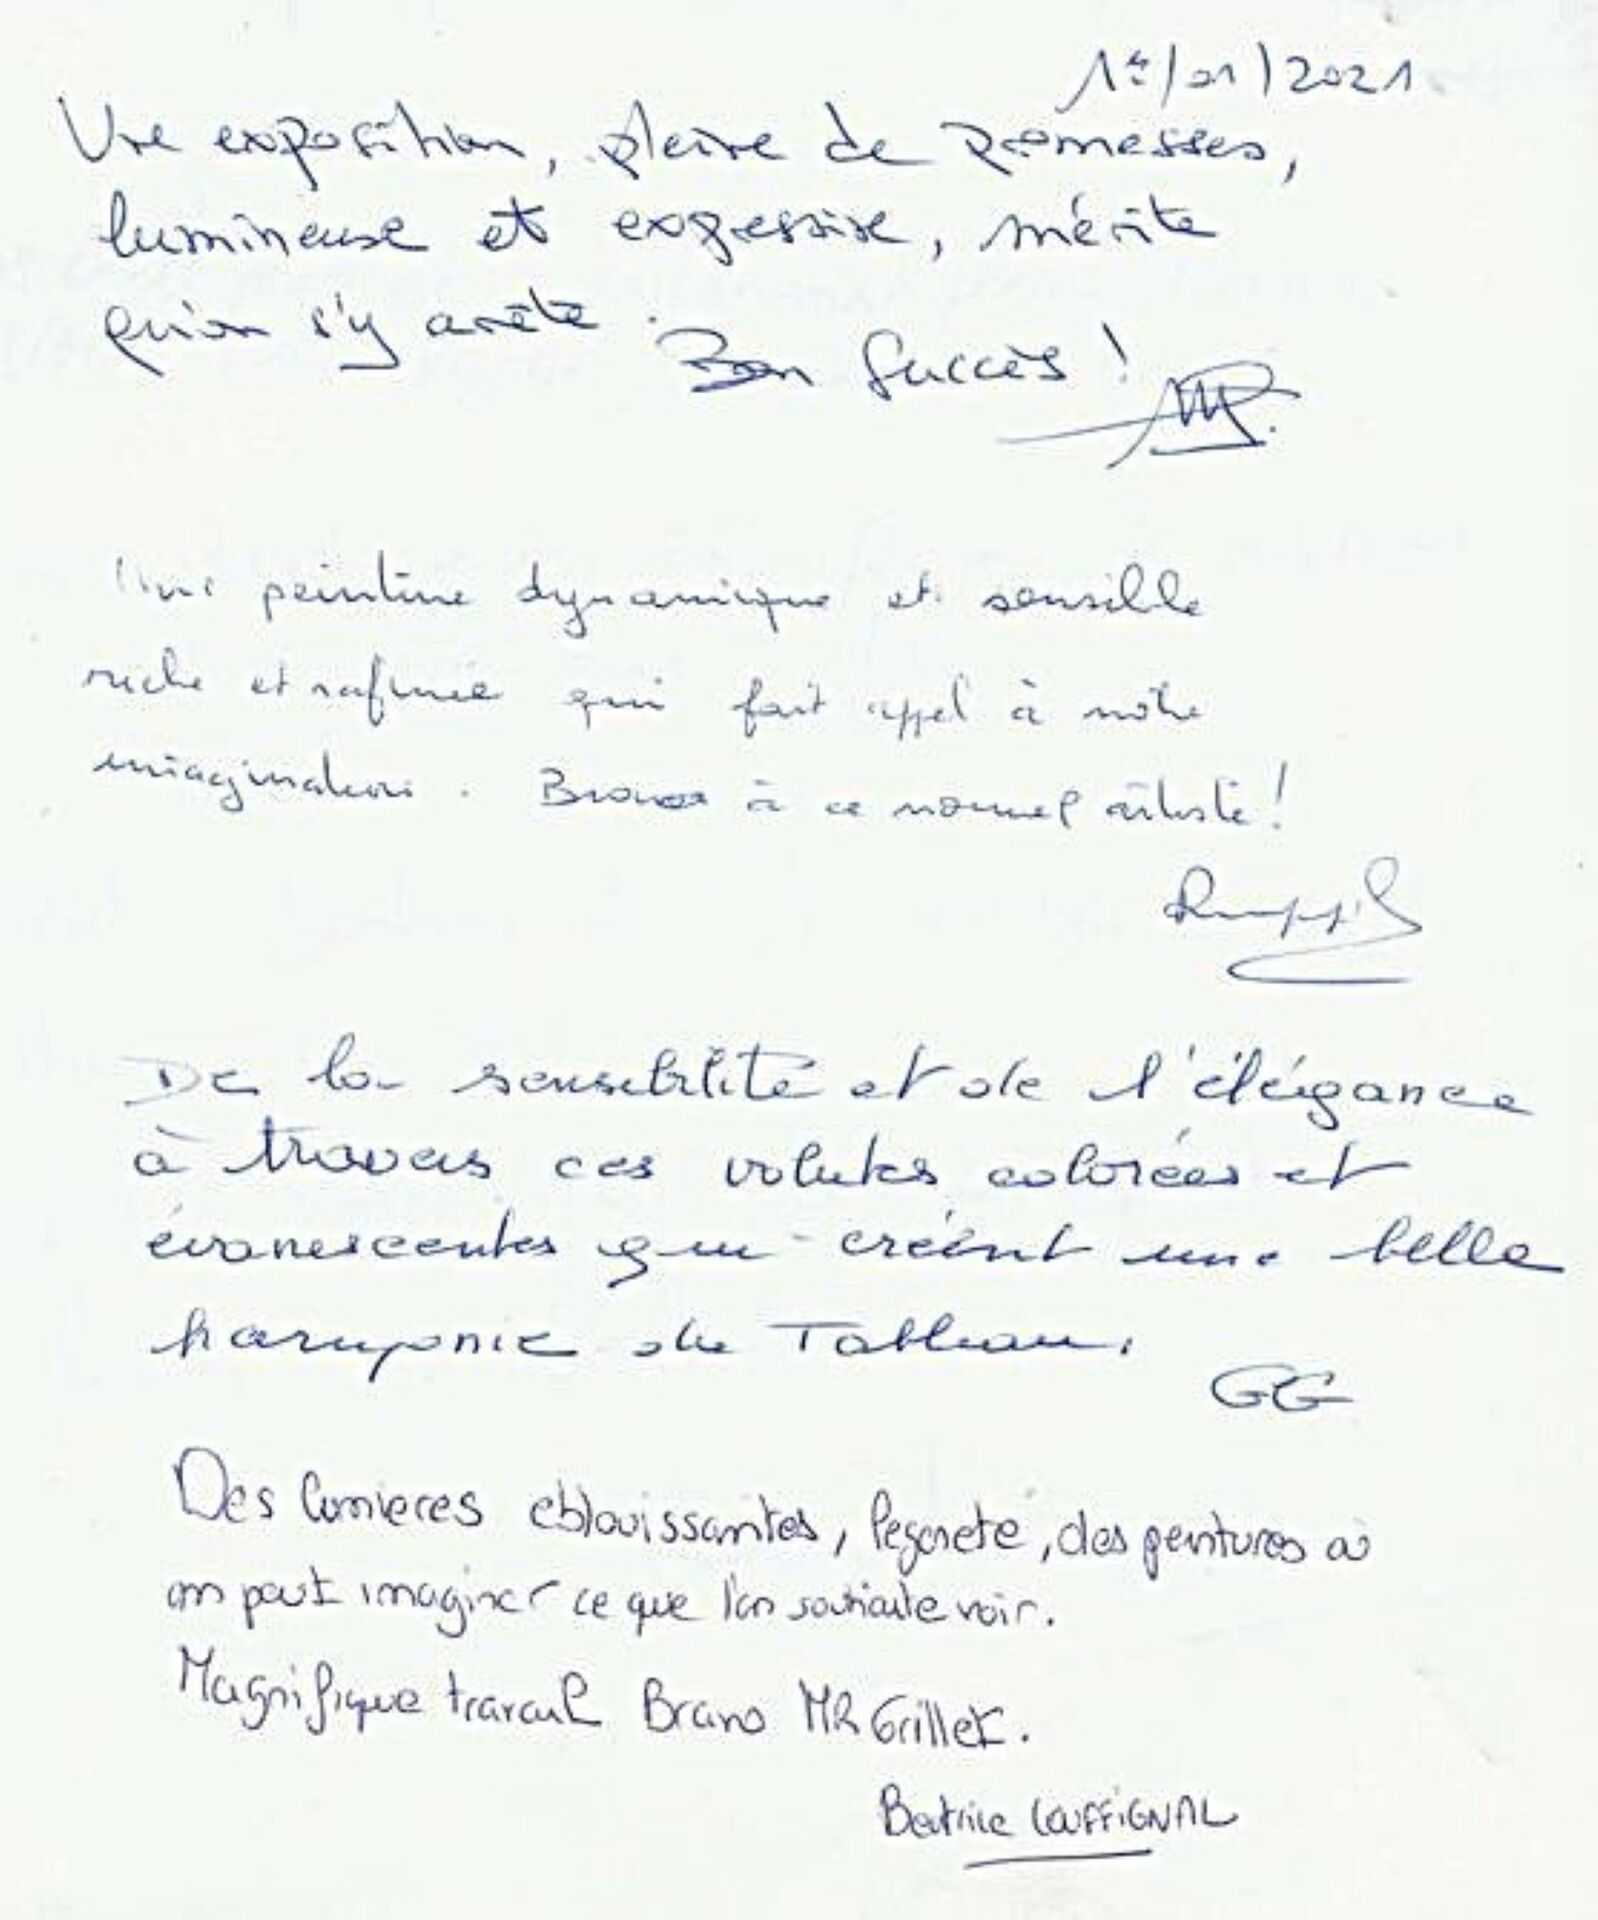 1er/01/2021
Une exposition, pleine de promesses,
lumineuse et expressive, mérite
qu'on s'y arrête.
Bon Succès !
Une peinture dynamique et sensible
riche et rafinée qui fait appel à notre
imagination. Bravo à ce nouvel artiste !
De la sensibilité et de l'élégance
à travers ces volutes colorées et
évanescentes qui créent une belle
harmonie de Tableau.
GG
Des lumieres eblouissantes, legerete, des peintures où
on peut imaginer ce que l'on souhaite voir.
Magnifique travail Bravo MR Grillet.
Beatrice COUFFIGNAL